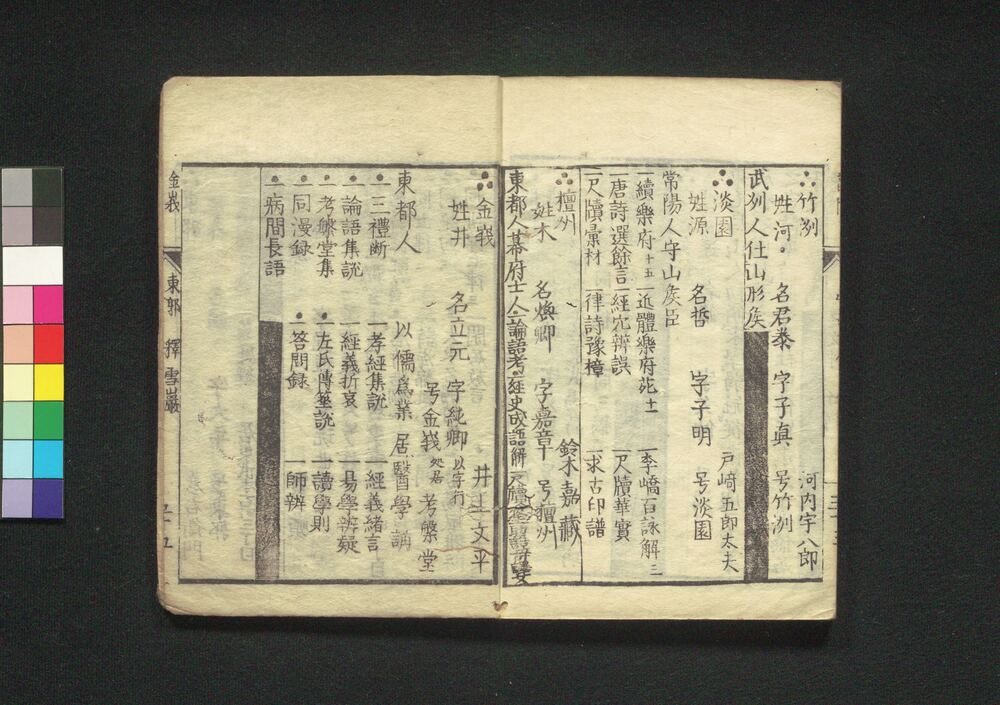 竹冽　　　　　　　　　　河内宇八郎
姓河　名君泰　字子真　号竹冽
武州人仕山形矦
淡園　　　　　　　　　戸崎五郎太夫
姓源　名哲　字子明　号淡園
常陽人守山矦臣
一續樂府十五　一近體樂府苑十一　一李嶠百詠解二
一唐詩選餘言　一經穴辨誤　一尺牘華實
一尺牘彙材　一律詩豫樟　一求古印譜
檀州　　　　　　　　　鈴木嘉藏
姓木　名煥卿　字嘉章　号檀州
東都人幕府士人一論語考一經史成語解一尺牘
金峩　　　　　　　　　井上文平
姓井　名立元　字純卿以字行
号金峩　処居考槃堂
東都人　以儒爲業　居醫学講
一三禮断　一孝經集説　一經義緒言
一論語集説　一經義折衷　一易學辨疑
一考槃堂集　一左氏傳筮説　一讀學則
一同漫録　一答問録　一師辨
一病間長語
金峩　東郭　釋雪巖